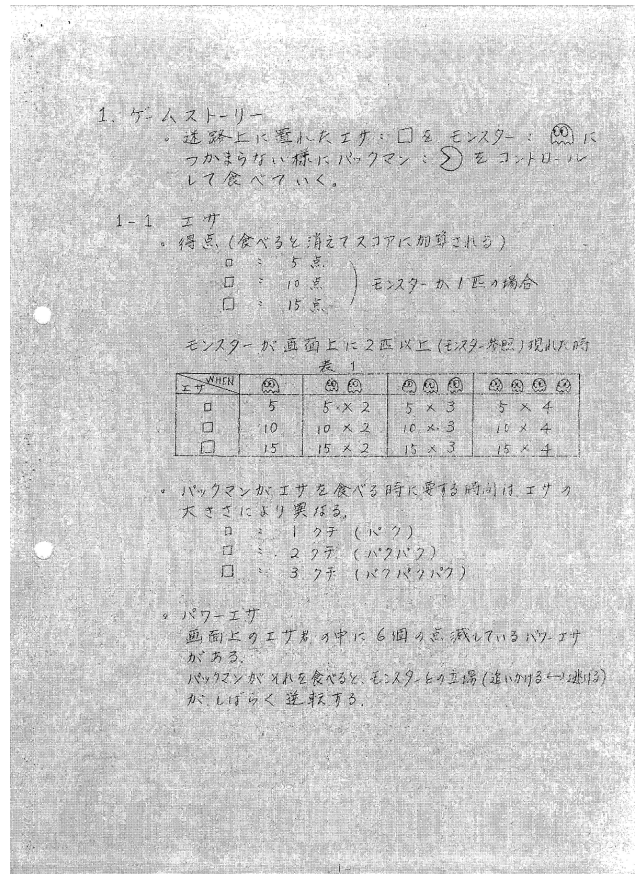 1. ゲームストーリー
。道路上に置れたエサ：□を モンスター： に
つかまらない様にパックマン： をコントロール
して食べていく。
1-1 エサ
。得点（食べると消えてスコアに加算される）
□ : 5点
□ : 10点 モンスターが1匹の場合
□ : 15点
モンスターが画面上に2匹以上（モンスター参照）現れた時
表1
エサ WHEN
□ 5 5×2 5×3 5×4
□ 10 10×2 10×3 10×4
□ 15 15×2 15×3 15×4
。パックマンがエサを食べる時に要する時間は、エサの
大きさにより異なる。
□ : 1クチ（パク）
□ : 2クチ（パクパク）
□ : 3クチ（パクパクパク）
。パワーエサ
画面上のエサ の中に6個の点滅しているパワーエサ
がある。
パックマンがそれを食べると、モンスターとの立場（追いかける↔逃げる）
が、しばらく逆転する。
-1-